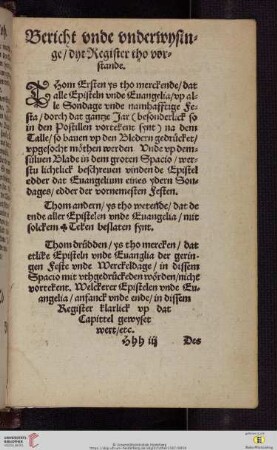 Bericht vnde vnderwysin-
ge/dyt Register tho vor-
stande.
Thom Ersten ys tho merckende/dat
alle Episteln vnde Euangelia/vp al-
le Sondage vnde namhafftige Fe-
sta/dorch dat gantze Jar (besonderlick so
in den Postillen vortekent synt) na dem
Talle/so bauen vp den Bledern gedrücket/
vpgesocht möthen werden. Vnde vp dem-
süluen Blade in dem groten Spacio/wer-
stu lichtlick beschreuen vinden de Epistel
edder dat Euangelium eines ydern Son-
dages/edder der vornemesten Festen.
Thom andern/ys tho wetende/dat de
ende aller Epistelen vnde Euangelia/mit
solckem ✠ Teken beslaten synt.
Thom drüdden/ys tho mercken/dat
etlike Episteln vnde Euanglia der gerin-
gen Feste vnde Werckeldage/in dissem
Spacio mit vthgedrücket wörden/nicht
vortekent. Welckerer Epistelen vnde Eu-
angelia/anfanck vnde ende/in dissem
Register klarlick vp dat
Capittel gewyset
wert/etc.
Hhh iij Des